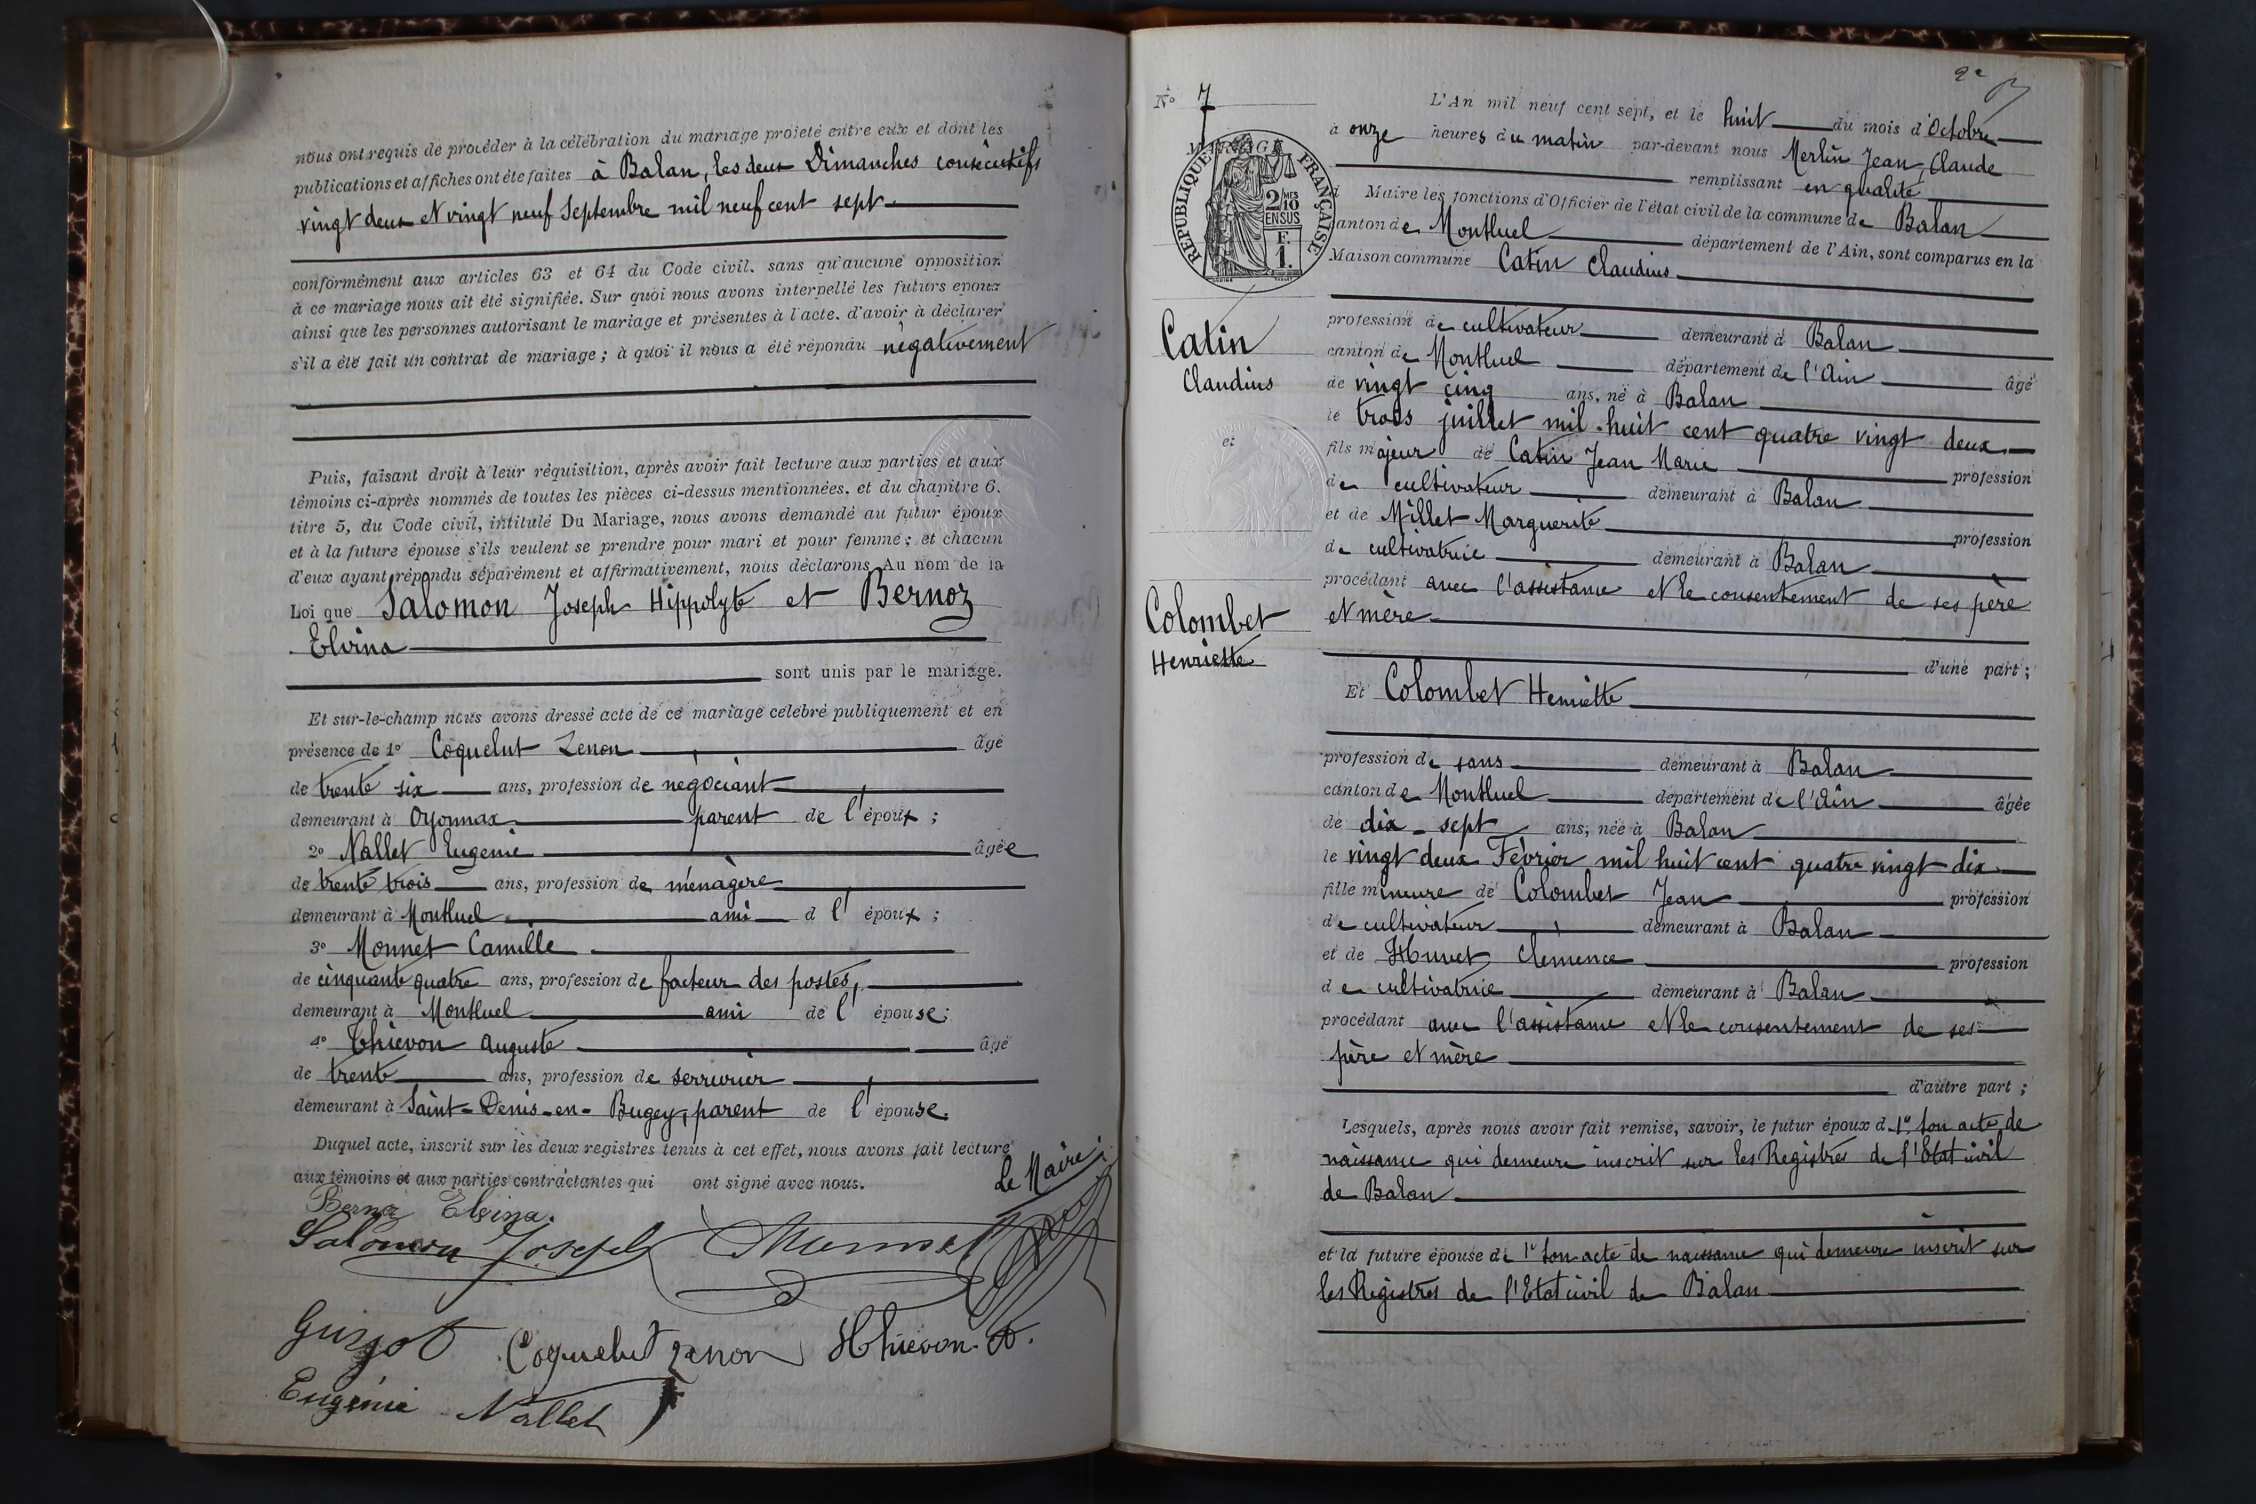 nous ont requis de procéder à la célébration du mariage projeté entre eux et dont les
publications et affiches ont été faites à Balan, les deux Dimanches consécutifs
vingt deux et vingt neuf Septembre mil neuf cent sept
conformément aux articles 63 et 64 du Code civil, sans qu'aucune opposition
à ce mariage nous ait été signifiée. Sur quoi nous avons interpellé les futurs époux
ainsi que les personnes autorisant le mariage et présentes à l'acte, d'avoir à déclarer
s'il a été fait un contrat de mariage; à quoi il nous a été répondu négativement
Puis, faisant droit à leur réquisition, après avoir fait lecture aux parties et aux
témoins ci-après nommés de toutes les pièces ci-dessus mentionnées, et du chapitre 6,
titre 5, du Code civil, intitulé Du Mariage, nous avons demandé au futur époux
et à la future épouse s'ils veulent se prendre pour mari et pour femme; et chacun
d'eux ayant répondu séparément et affirmativement, nous déclarons Au nom de la
Loi que Salomon Joseph Hippolyte et Bernoz
Elvina
sont unis par le mariage.
Et sur-le-champ nous avons dressé acte de ce mariage célébré publiquement et en
présence de 1° Coquelut Zenon âgé
de trente six ans, profession de négociant
demeurant à Oyonnax parent de l'époux;
2° Nallet Eugenie âgée
de trente trois ans, profession de ménagère
demeurant à Montluel ami d l'époux;
3° Monnet Camille
de cinquante quatre ans, profession de facteur des postes,
demeurant à Montluel ami de l'épouse;
4° Thievon Auguste âgé
de trente ans, profession de serrurier
demeurant à Saint-Denis-en-Bugey, parent de l'épouse.
Duquel acte, inscrit sur les deux registres tenus à cet effet, nous avons fait lecture
aux témoins et aux parties contractantes qui ont signé avec nous.
Le Maire
Elvina
Salomon Joseph
Coquelut Zenon Thievon. A.
Eugénie Nallet
N° 7
MARIAGE
REPUBLIQUE FRANÇAISE
2/10 MES
EN SUS
F.
1.
L'An mil neuf cent sept, et le huit du mois d'Octobre
à onze heures du matin par-devant nous Merlin Jean, Claude
remplissant en qualité
Maire les fonctions d'Officier de l'état civil de la commune de Balan
canton de Montluel département de l'Ain, sont comparus en la
Maison commune Catin Claudius
Catin
Claudius
profession de cultivateur demeurant à Balan
canton de Montluel département de l'Ain âgé
de vingt cinq ans, né à Balan
le trois juillet mil huit cent quatre vingt deux
et
fils majeur de Catin Jean Marie profession
de cultivateur demeurant à Balan
et de Millet Marguerite profession
de cultivatrice demeurant à Balan
procédant avec l'assistance et le consentement de ses père
et mère
Colombet
Henriette
d'une part;
Et Colombet Henriette
profession de sans demeurant à Balan
canton de Montluel département de l'Ain âgée
de dix-sept ans, née à Balan
le vingt deux Février mil huit cent quatre vingt dix
fille mineure de Colombet Jean profession
de cultivateur demeurant à Balan
et de Huvet Clemence profession
de cultivatrice demeurant à Balan
procédant avec l'assistance et le consentement de ses
père et mère
d'autre part;
Lesquels, après nous avoir fait remise, savoir, le futur époux d 1° son acte de
naissance qui demeure inscrit sur les Registres de l'Etat civil
de Balan
et la future épouse de 1° son acte de naissance qui demeure inscrit sur
les Registres de l'Etat civil de Balan